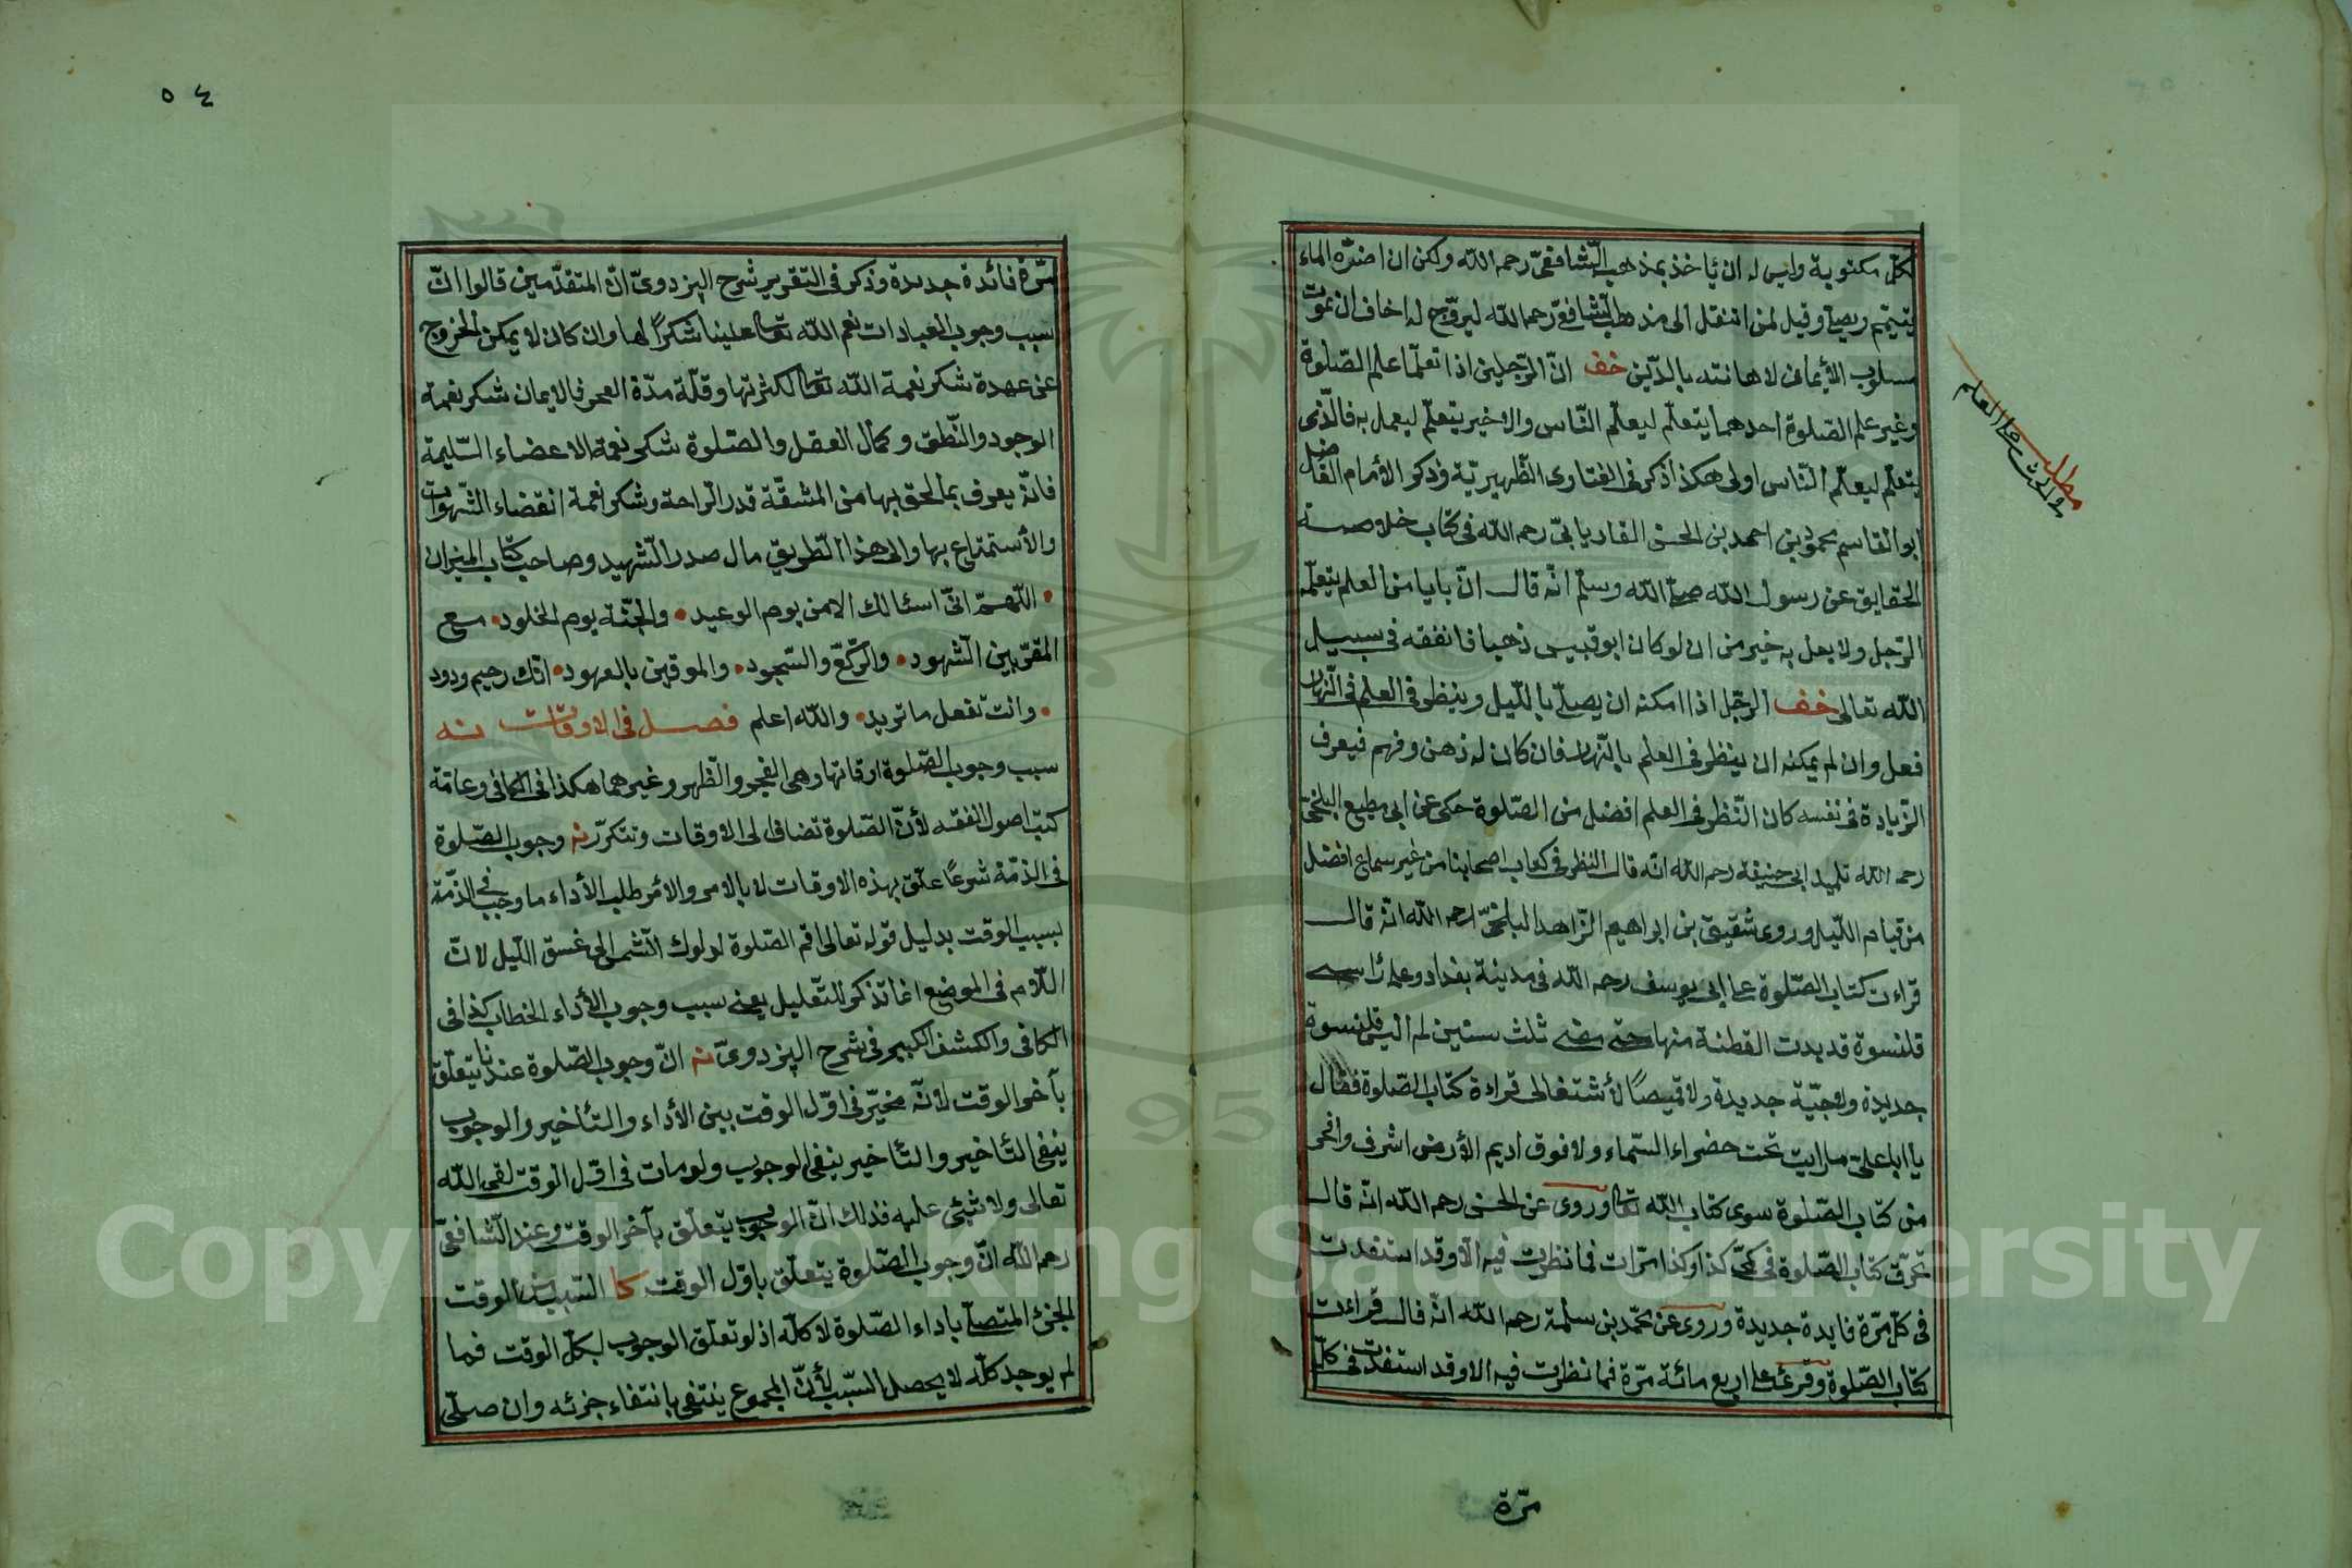 لكل مكتوبة وليس له ان ياخذ بمذهب الشافعي رحمه الله ولكن ان اضره الماء
يتيمم ويصلي وقيل لمن انتقل الى مذهب الشافعي رحمه الله ليزوج له اخاف ان يموت
مسلوب الأيمان لاهانته بالدين خف ان الرجلين اذا تعلما علم الصلوة
وغير علم الصلوة احدهما يتعلم ليعلم الناس والاخير يتعلم ليعمل به فالذى
يتعلم ليعلم الناس اولى هكذا ذكر فى الفتاوى الظهيرية وذكر الأمام الفاضل
ابو القاسم محمود بن احمد بن الحسن الفاريابى رحمه الله فى كتاب خلاصة
الحقايق عن رسول الله صلى الله وسلم انه قال ان بابا من العلم يتعلمه
الرجل ولا يعمل به خير من ان لو كان ابو قبيس ذهبا فانفقه فى سبيل
الله تعالى خف الرجل اذا امكنه ان يصلى بالليل وينظر فى العلم فى النهار
فعل وان لم يمكنه ان ينظر فى العلم بالنهار فان كان له ذهن وفهم فيعرف
الزيادة فى نفسه كان النظر فى العلم افضل من الصلوة حكى عن ابى مطيع البلخى
رحمه الله تلميد ابى حنيفة رحمه الله انه قال النظر فى كتاب اصحابنا من غير سماع افضل
من قيام الليل وروى شقيق بن ابراهيم الزاهد البلخى رحمه الله انه قال
قراءت كتاب الصلوة على ابى يوسف رحمه الله فى مدينة بغداد وعلى رأسى
قلنسوة قد بدت القطنة منها حتى مضى ثلث سنين لم البس قلنسوة
جديدة ولا جبة جديدة ولا قميصا لأشتغالى قراءة كتاب الصلوة فقال
يا ابا على ما رايت تحت خضراء السماء ولا فوق اديم الأرض اشرف وافخر
من كتاب الصلوة سوى كتاب الله تعا وروى عن الحسن رحمه الله انه قال
تخرق كتاب الصلوة فى كمى كذا وكذا مرات فما نظرت فيه الا وقد استفدت
فى كل مرة فايدة جديدة وروى عن محمد بن سلمة رحمه الله انه قال قراءت
كتاب الصلوة وقرئت على اربع مائة مرة فما نظرت فيه الا وقد استفدت فى كل
مرة
مطلب
فى الحث على العلم
٥٤
مرة فائدة جديدة وذكر فى التقرير شرح البزدوى ان المتقدمين قالوا ان
سبب وجوب العبادات نعم الله تعا علينا شكرا لها وان كان لا يمكن الخروج
عن عهدة شكر نعمة الله تعا لكثرتها وقلة مدة العمر فالايمان شكر نعمة
الوجود والنطق وكمال العقل والصلوة شكر نعمة الاعضاء السليمة
فانه يعرف بما لحق بها من المشقة قدر الراحة وشكر نعمة انقضاء الشهوات
والأستمتاع بها والى هذا الطريق مال صدر الشهيد وصاحب كتاب الميزان
• اللهم انى اسئالك الامن يوم الوعيد • والجنة يوم الخلود • مع
المقربين الشهود • والركع والسجود • والموفين بالعهود • انك رحيم ودود
• وانت تفعل ما تريد • والله اعلم فصل فى الاوقات نه
سبب وجوب الصلوة اوقاتها وهى الفجر والظهر وغيرهما هكذا فى الكافى وعامة
كتب اصول الفقه لأن الصلوة تضاف الى الاوقات وتتكرر نه وجوب الصلوة
فى الذمة شرعا علق بهذه الاوقات لا بالامر والامر طلب الأداء ما وجب فى الذمة
بسبب الوقت بدليل قوله تعالى اقم الصلوة لدلوك الشمس الى غسق الليل لان
اللام فى الموضع انما تذكر للتعليل يعنى سبب وجوب الأداء الخطاب كذا فى
الكافى والكشف الكبير فى شرح البزدوى نه ان وجوب الصلوة عندنا يتعلق
بآخر الوقت لانه مخير فى اول الوقت بين الأداء والتأخير والوجوب
ينفى التأخير والتأخير ينفى الوجوب ولو مات فى اول الوقت لقى الله
تعالى ولا شئ عليه فذلك ان الوجوب يتعلق بآخر الوقت وعند الشافعى
رحمه الله ان وجوب الصلوة يتعلق باول الوقت كا السبب من الوقت
الجزء المتصل باداء الصلوة لا كله اذ لو تعلق الوجوب لكل الوقت فما
لم يوجد كله لا يحصل السبب لأن المجموع ينتفى بانتفاء جزئه وان صلى
Copyright © King Saud University